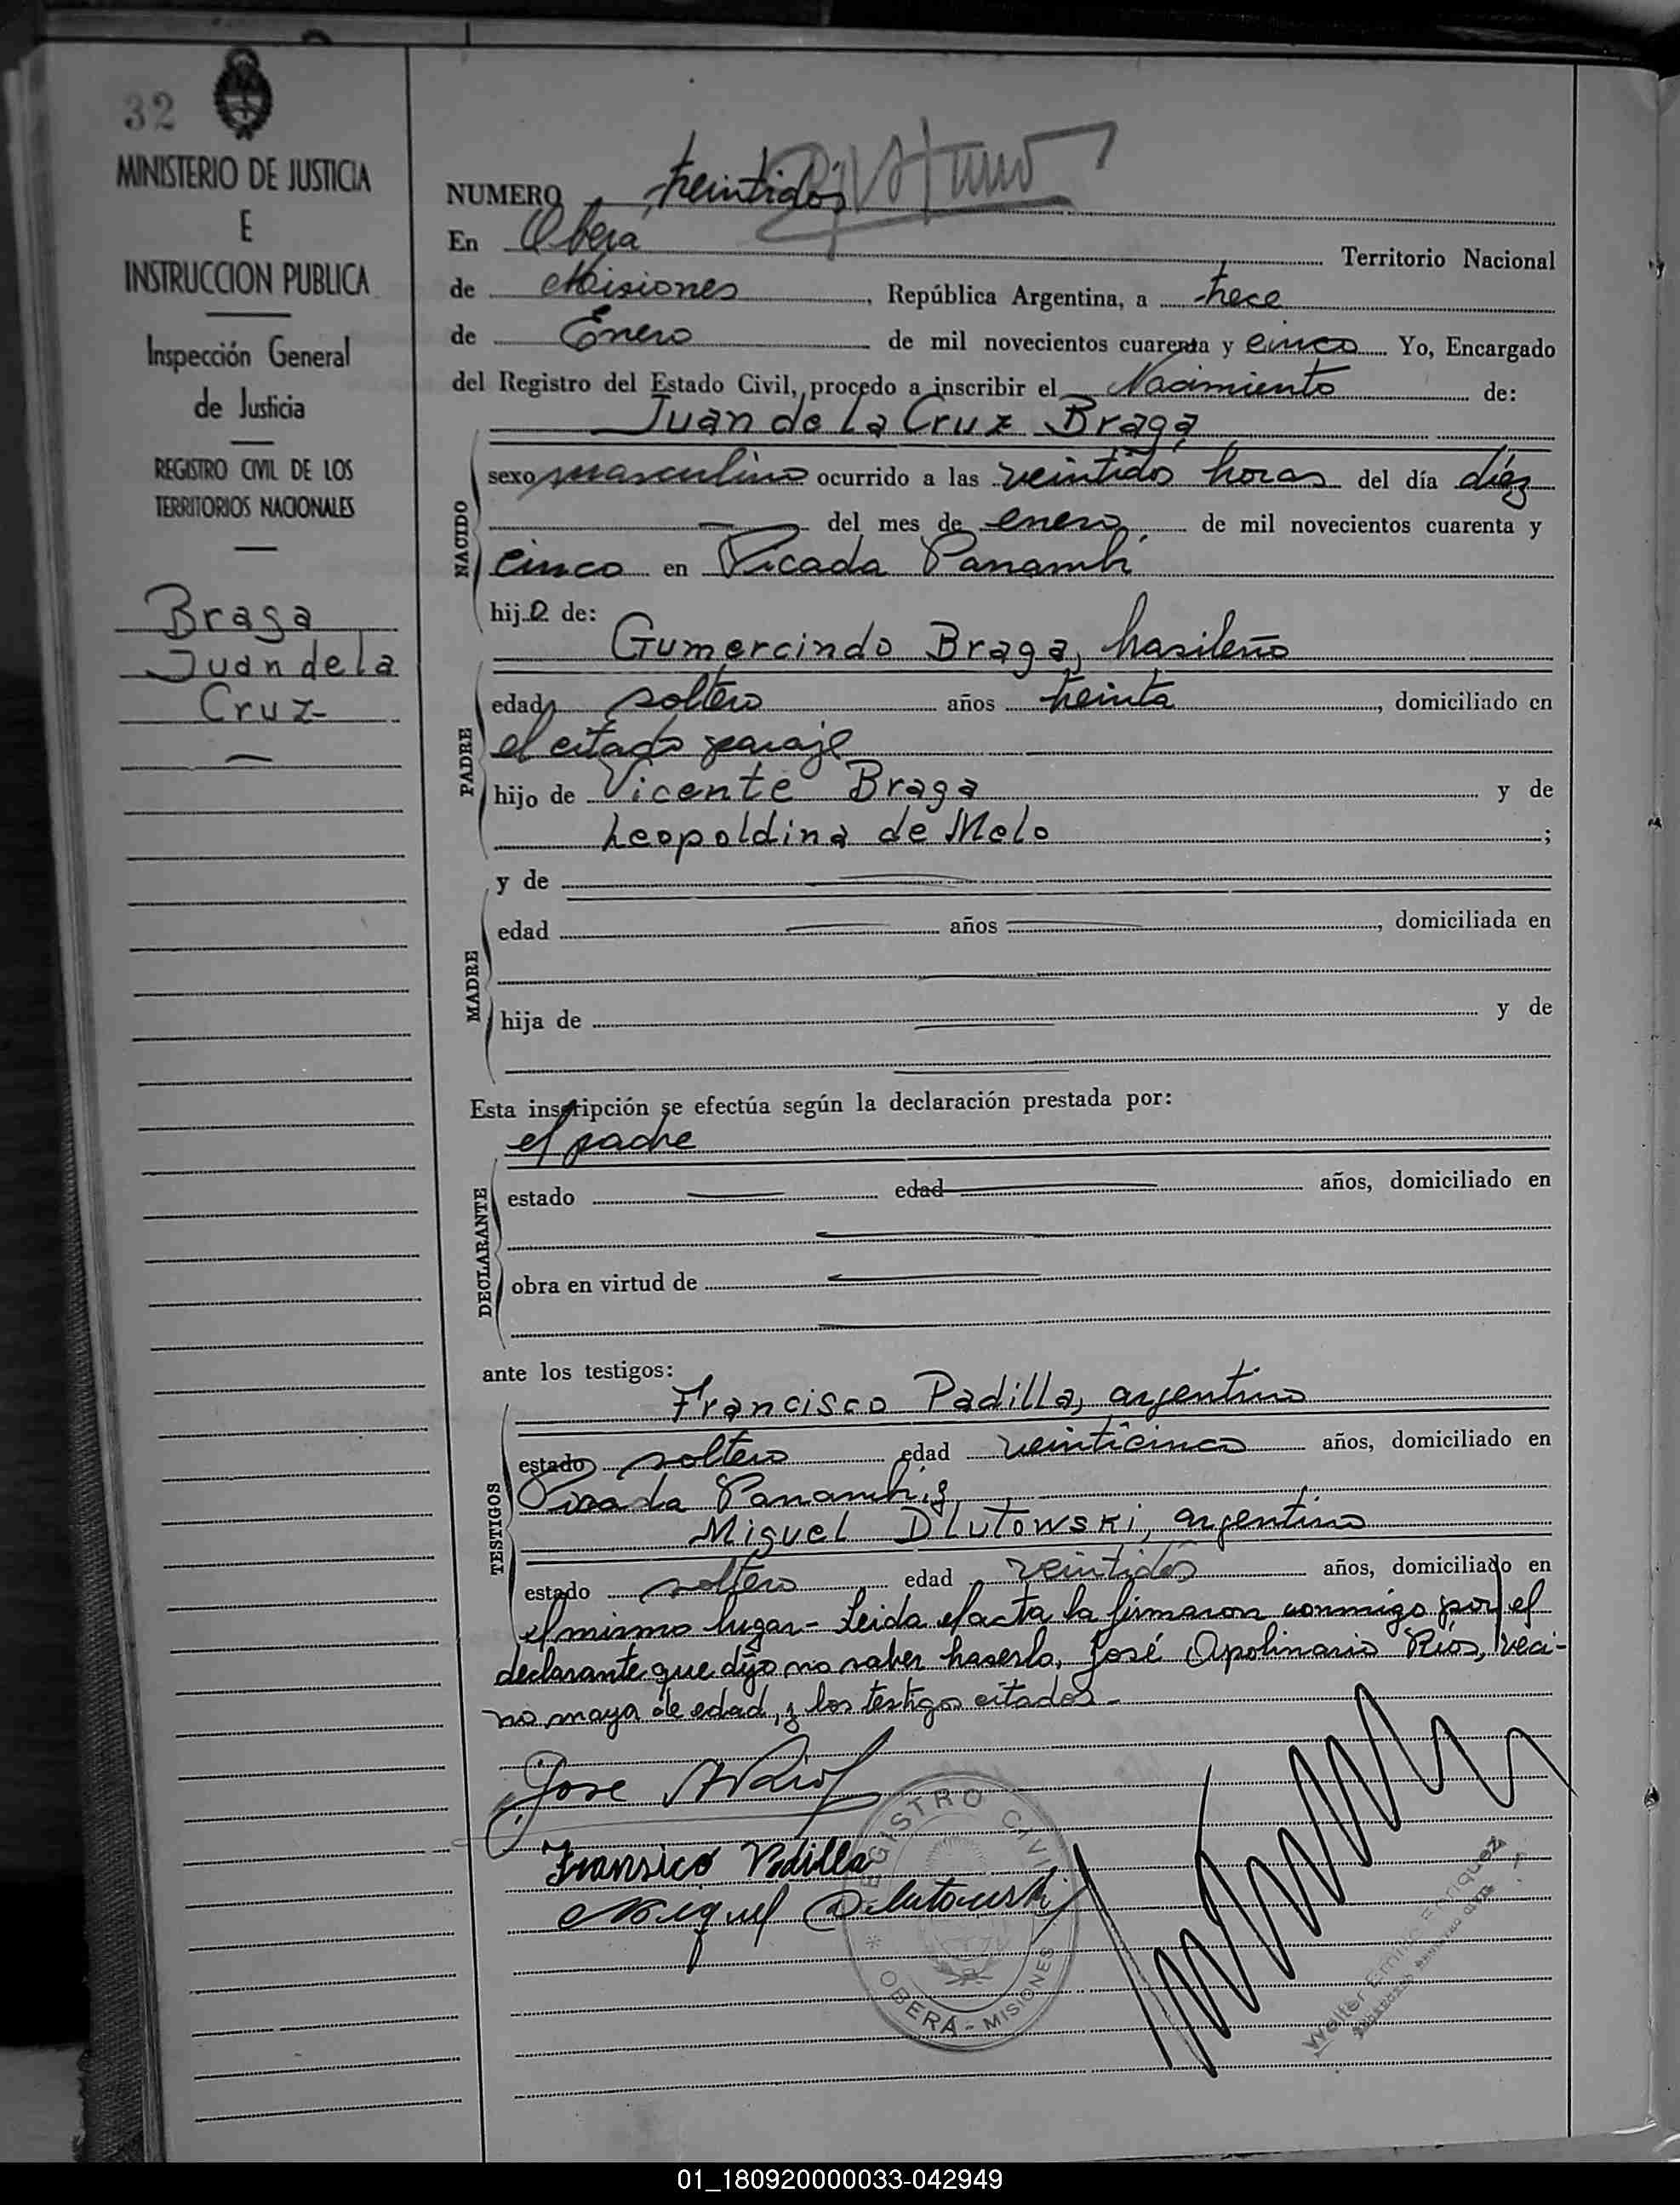 32
MINISTERIO DE JUSTICIA
E
INSTRUCCION PUBLICA
Inspección General
de Justicia
REGISTRO CIVIL DE LOS
TERRITORIOS NACIONALES
Braga
Juan de la
Cruz
NUMERO treintidos
En Oberá Territorio Nacional
de Misiones, República Argentina, a trece
de Enero de mil novecientos cuarenta y cinco Yo, Encargado
del Registro del Estado Civil, procedo a inscribir el Nacimiento de:
Juan de La Cruz Braga
NACIDO
sexo masculino ocurrido a las veintidos horas del día diéz
del mes de enero de mil novecientos cuarenta y
cinco en Picada Panambí
hijo de:
Gumercindo Braga, brasileño
PADRE
edad soltero años treinta, domiciliado en
el citado paraje
hijo de Vicente Braga y de
Leopoldina de Melo ;
y de
MADRE
edad años , domiciliada en
hija de y de
Esta inscripción se efectúa según la declaración prestada por:
el padre
DECLARANTE
estado edad años, domiciliado en
obra en virtud de
ante los testigos:
Francisco Padilla, argentino
TESTIGOS
estado soltero edad veinticinco años, domiciliado en
Picada Panambí y
Miguel Dlutowski, argentino
estado soltero edad veintidos años, domiciliado en
el mismo lugar - Leida el acta la firmaron conmigo por el
declarante que dijo no saber haserlo, José Apolinario Ríos, veci-
no mayor de edad, y los testigos citados -
Jose A Rios
Fransico Padilla
Miguel Dlutowski
REGISTRO CIVIL
* OBERÁ - MISIONES
Walter Emilio Enriquez
01_180920000033-042949